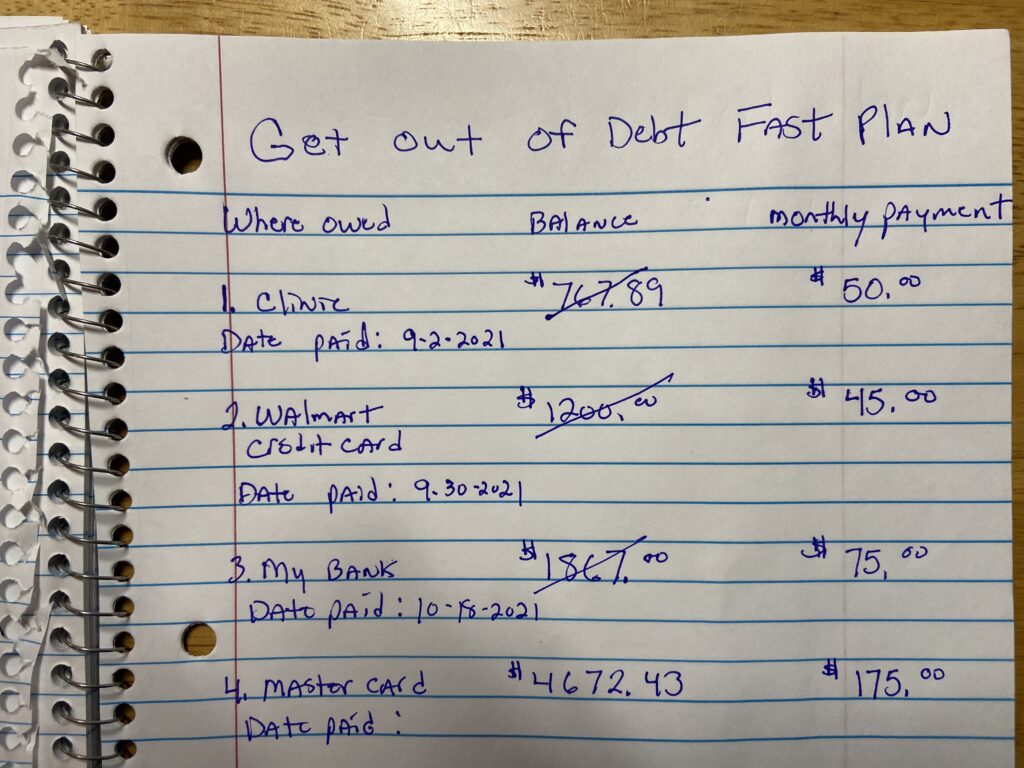 Get out of Debt Fast Plan
Where owed Balance monthly payment
1. Clinic $767.89 $50.00
Date paid: 9-2-2021
2. Walmart $1200.00 $45.00
credit card
Date paid: 9-30-2021
3. My Bank $1867.00 $75.00
Date paid: 10-18-2021
4. Master card $4672.43 $175.00
Date paid: